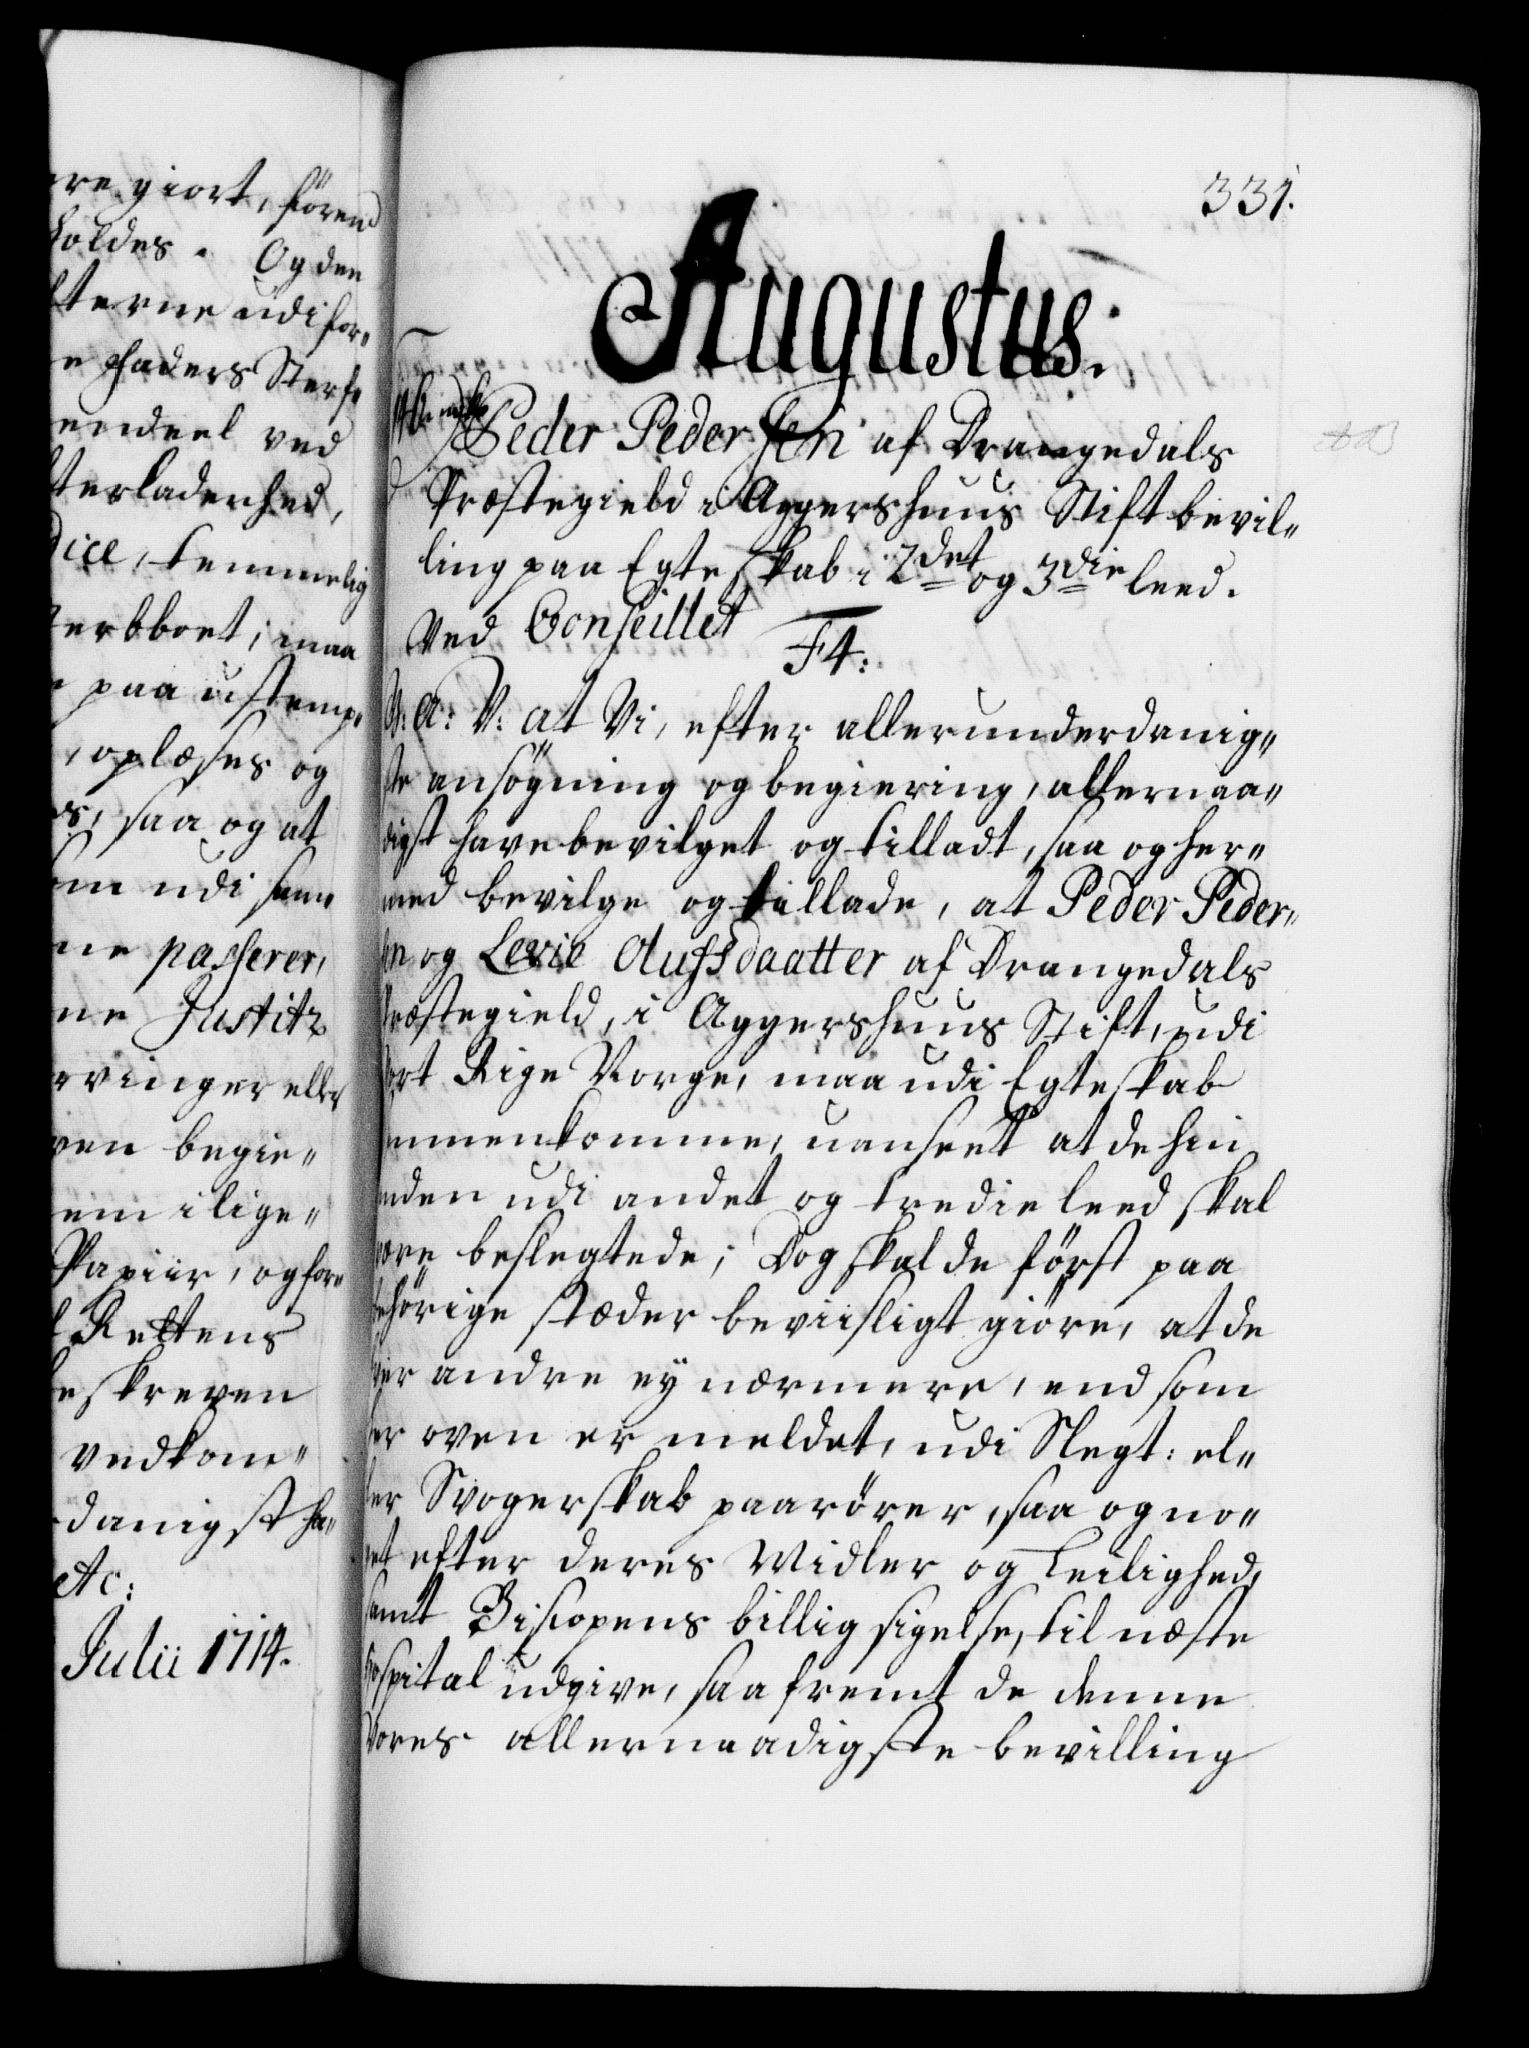 re giort, förend
holdes. Og den
fterne udi for,,
e Faders Sterf,,
eendeel ved
fterladenhed,
dice, temmelig
terbboet; maa
paa ustemp,,
, oplæses og
s, saa og at
m udi sam,,
ne passerer,
ne Justitz
rvinger eller
ven begie,,
em i lige,,
Papiir, og for,,
Rettens
beskreven
vedkom,,
danigst ha,,
etc:
Julii 1714.
331.
Augustus.
Peder Pedersen af Drangedals
Præstegield i Aggershuus Stift bevil,,
ling paa Egteskab i 2det og 3die leed.
Ved Conseillet
F4:
G: A: V: at Vi, efter allerunderdanig,,
ste ansögning og begiering, allernaa,,
digst have bevilget og tilladt, saa og her,,
med bevilge og tillade, at Peder Peder,,
sen og Levie Olufsdaatter af Drangedals
Præstegield, i Aggershuus Stift, udi
Vort Rige Norge, maa udi Egteskab
sammenkomme, uanseet at de hin
anden udi andet og tredie leed skal
være beslegtede; Dog skal de först paa
behörige stæder beviisligt giöre, at de
hver andre ey nærmere, end som
her oven er meldet, udi Slegt: el,,
ler Svogerskab paarörer, saa og no,,
get efter deres Midler og Leilighed,
samt Biscopens billig sigelse, til næste
Hospital udgive, saafremt de denne
Vores allernaadigste bevilling